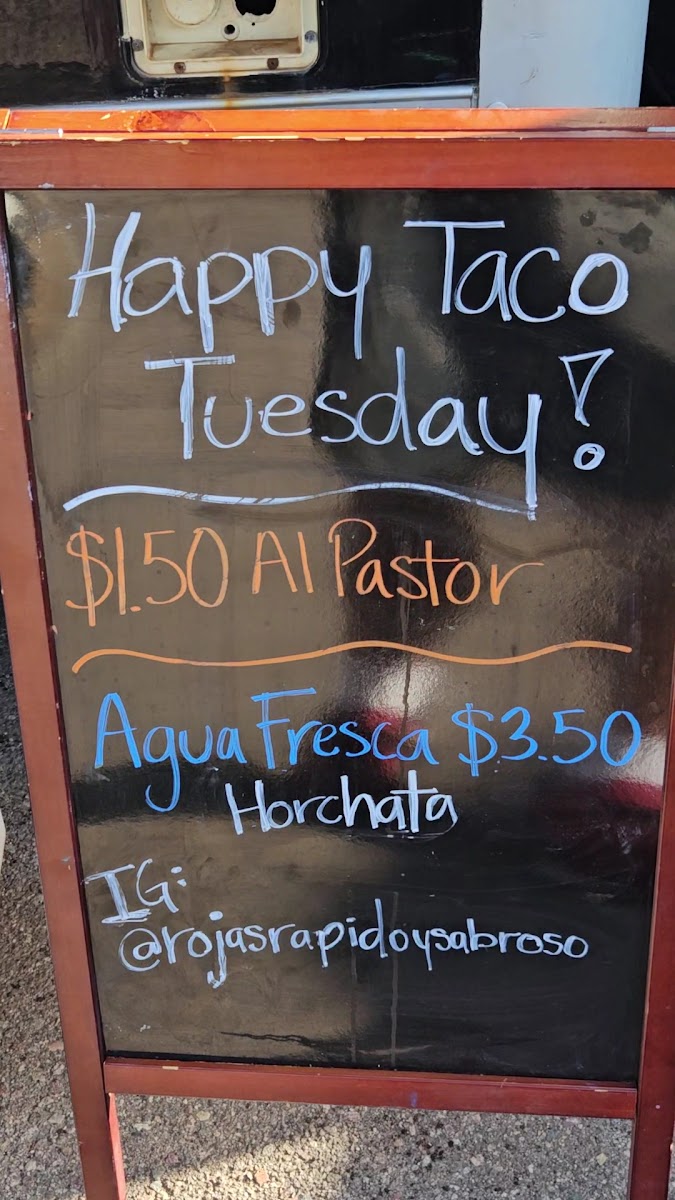 Happy Taco
Tuesday!
$1.50 Al Pastor
Agua Fresca $3.50
Horchata
IG:
@rojasrapidoysabroso